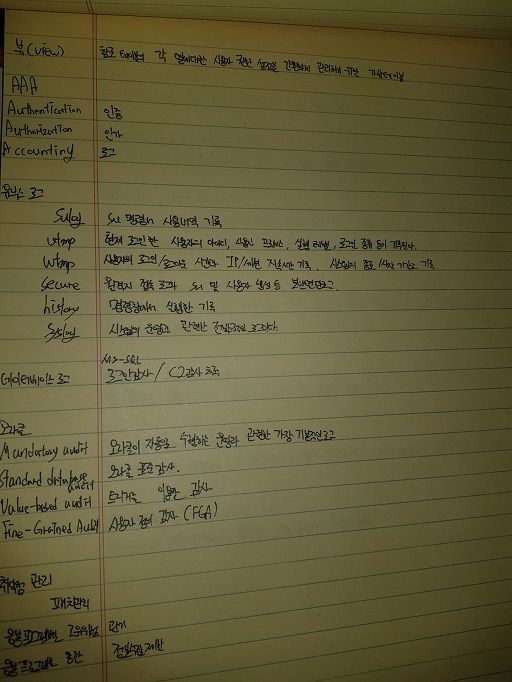 뷰(view) 참조 테이블의 각 열에대한 사용자 권한 설정을 간편하게 관리하기 위한 가상테이블
AAA
Authentication 인증
Authorization 인가
Accounting 로그
유닉스 로그
sulog su 명령어 사용내역 기록
utmp 현재 로그인한 사용자의 아이디, 사용자 프로세스, 실행레벨, 로그인 종류 등이 기록된다.
wtmp 사용자의 로그인/로그아웃 시간과 IP/세션 지속시간 기록, 시스템의 종료/시작 시간도 기록
secure 원격지 접속 로그와 su 및 사용자 생성 등 보안관련로그
history 명령창에서 실행한 기록
syslog 시스템의 운영과 관련한 전반적인 로그이다.
MS-SQL
데이터베이스 로그 로그인감사/C2감사 추적
오라클
Mandatory audit 오라클이 자동으로 수행하는 운영과 관련한 가장 기본적인로그
Standard database audit 오라클 표준감사.
Value-based audit 트리거를 이용한 감사
Fine-Grained Audit 사용자 정의 감사(FGA)
취약점 관리
패치관리
응용프로그램별 고유위험 관리
응용프로그램을 통한 정보수집제한